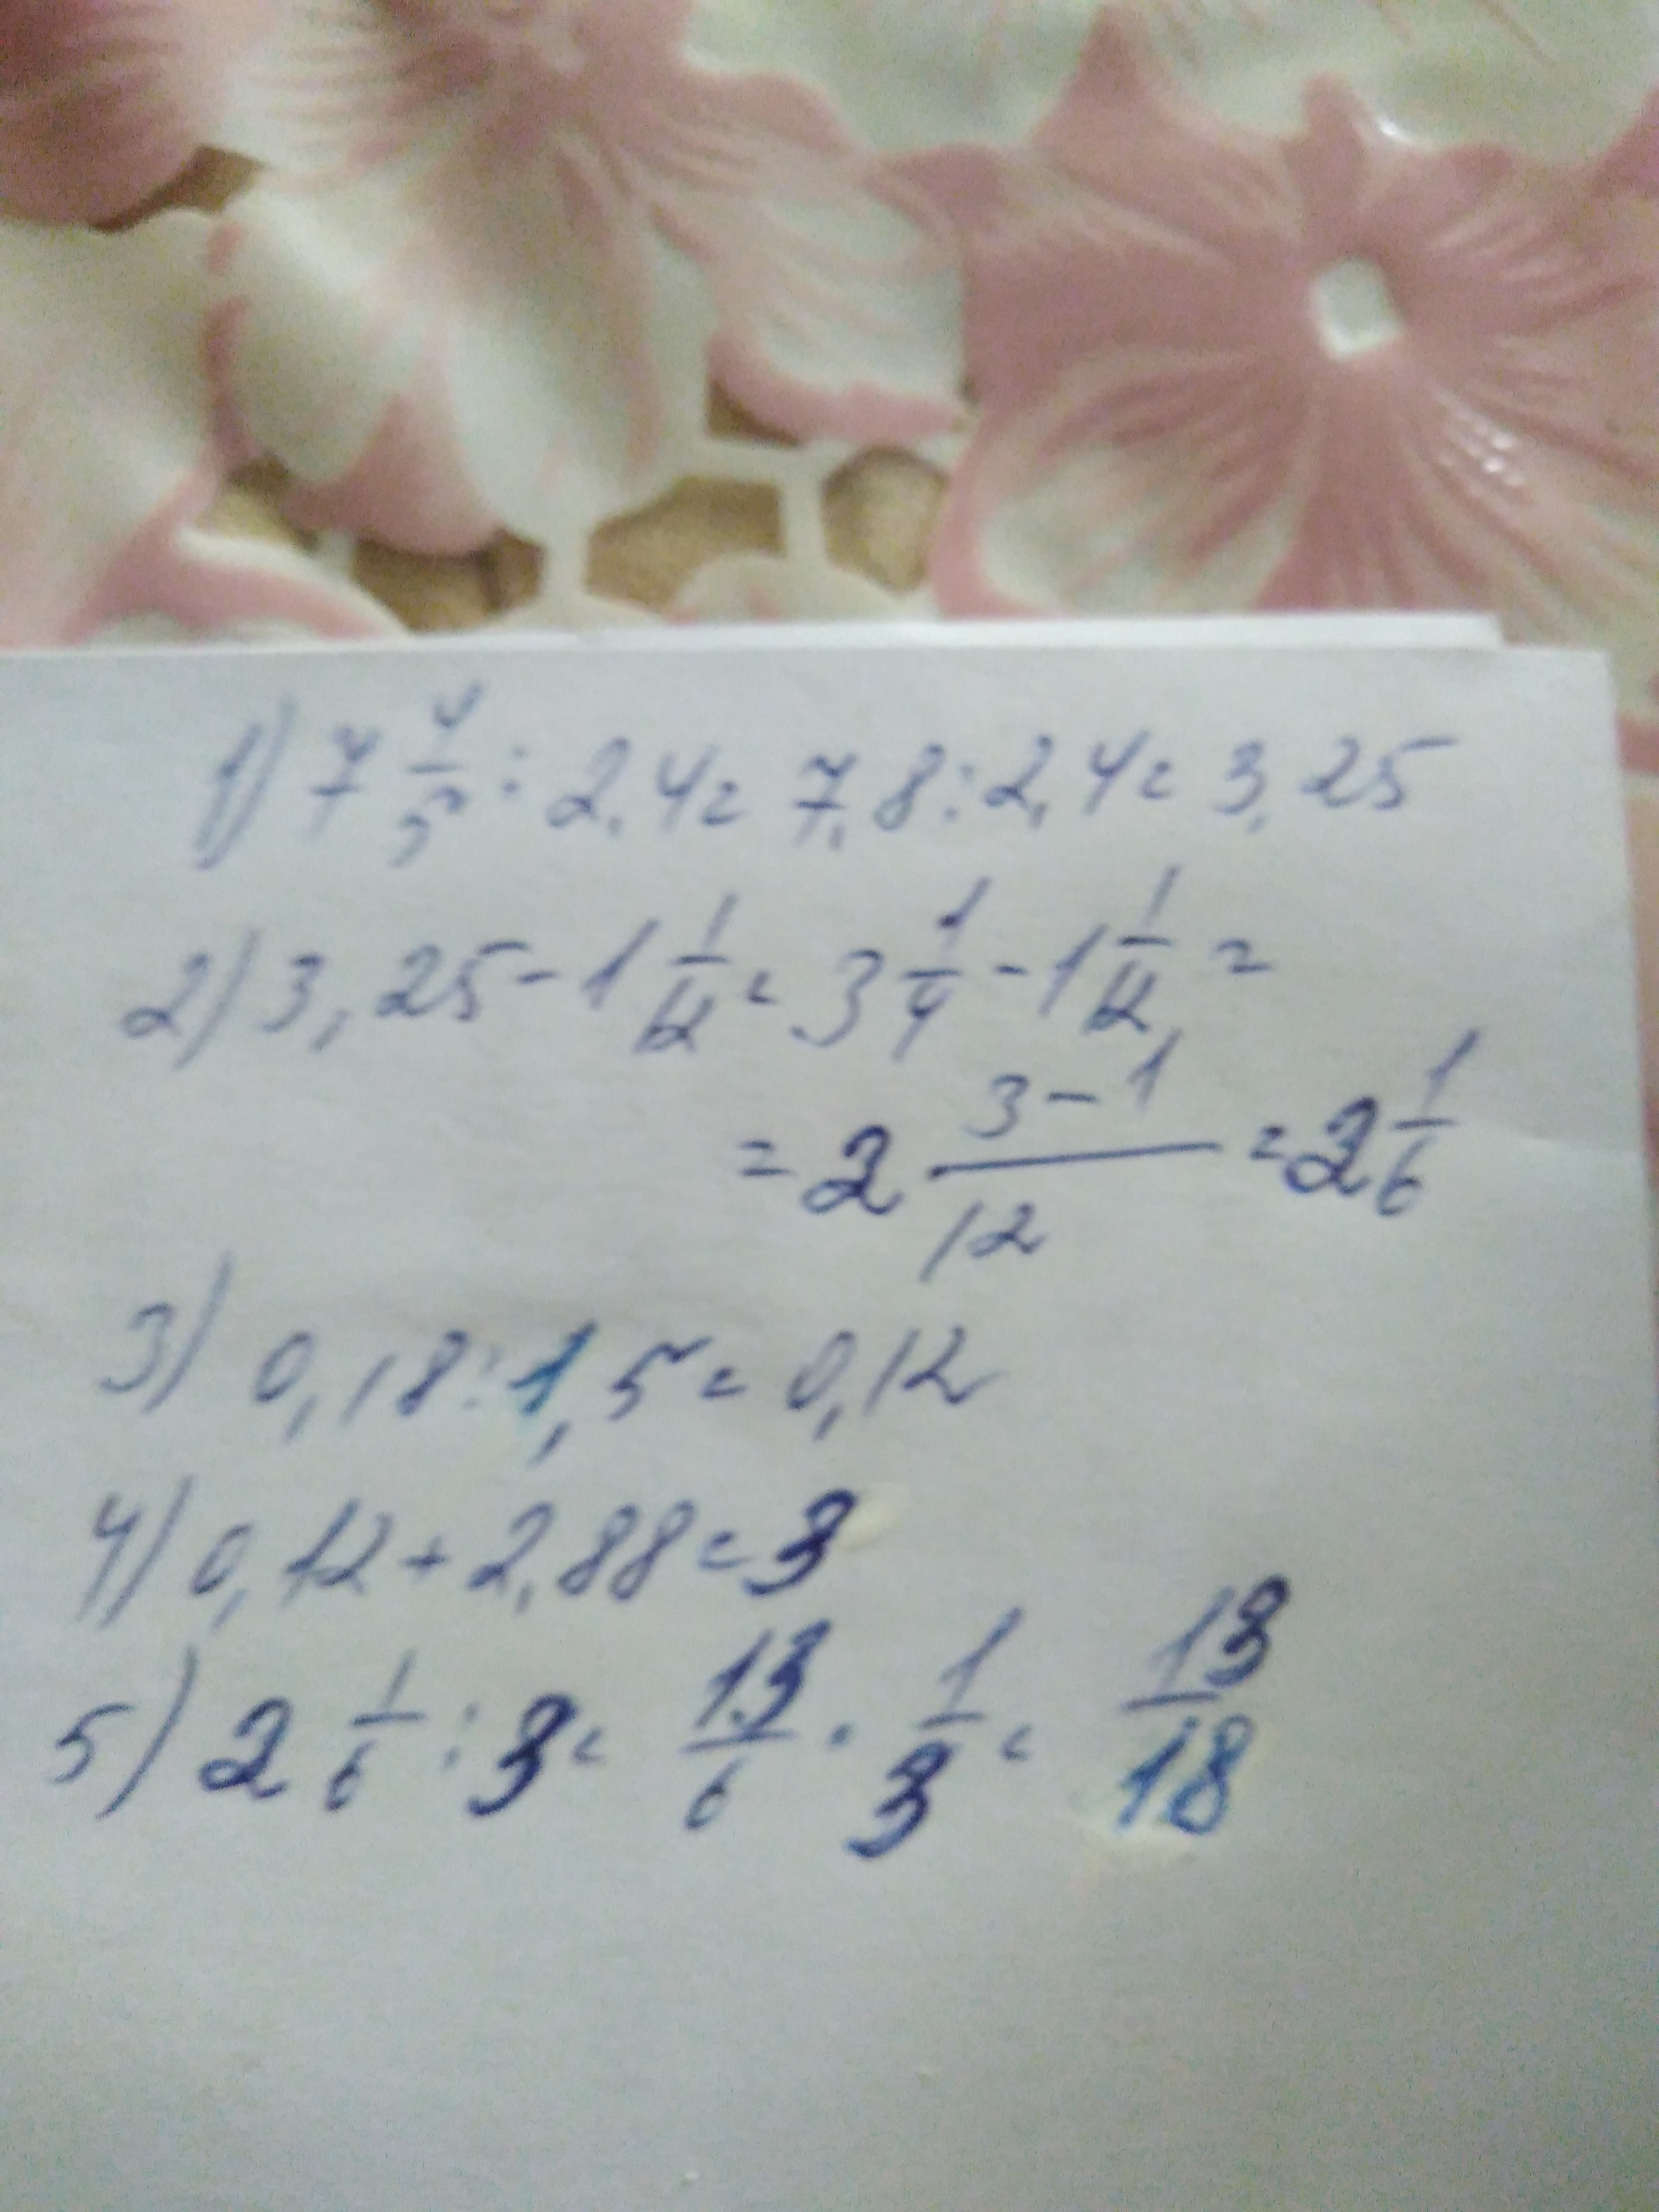 1) 7 4/5 : 2,4 = 7,8 : 2,4 = 3,25
2) 3,25 - 1 1/12 = 3 1/4 - 1 1/12 =
= 2 3-1/12 = 2 1/6
3) 0,18 : 1,5 = 0,12
4) 0,12 + 2,88 = 3
5) 2 1/6 : 3 = 13/6 · 1/3 = 13/18